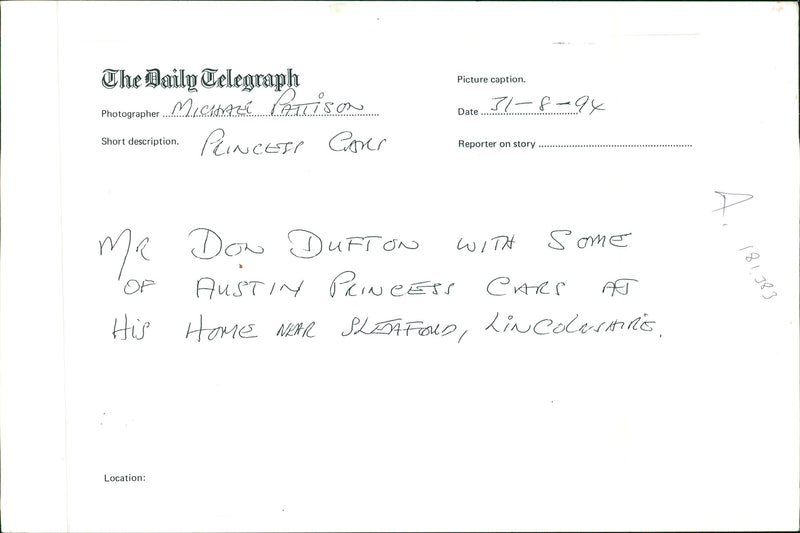 The Daily Telegraph
Picture caption.
Photographer MICHAEL PATTISON
Date 31-8-94
Short description. PRINCESS CARS
Reporter on story
MR DON DUFTON WITH SOME
OF AUSTIN PRINCESS CARS AT
HIS HOME NEAR SLEAFORD, LINCOLNSHIRE.
181.383
Location: